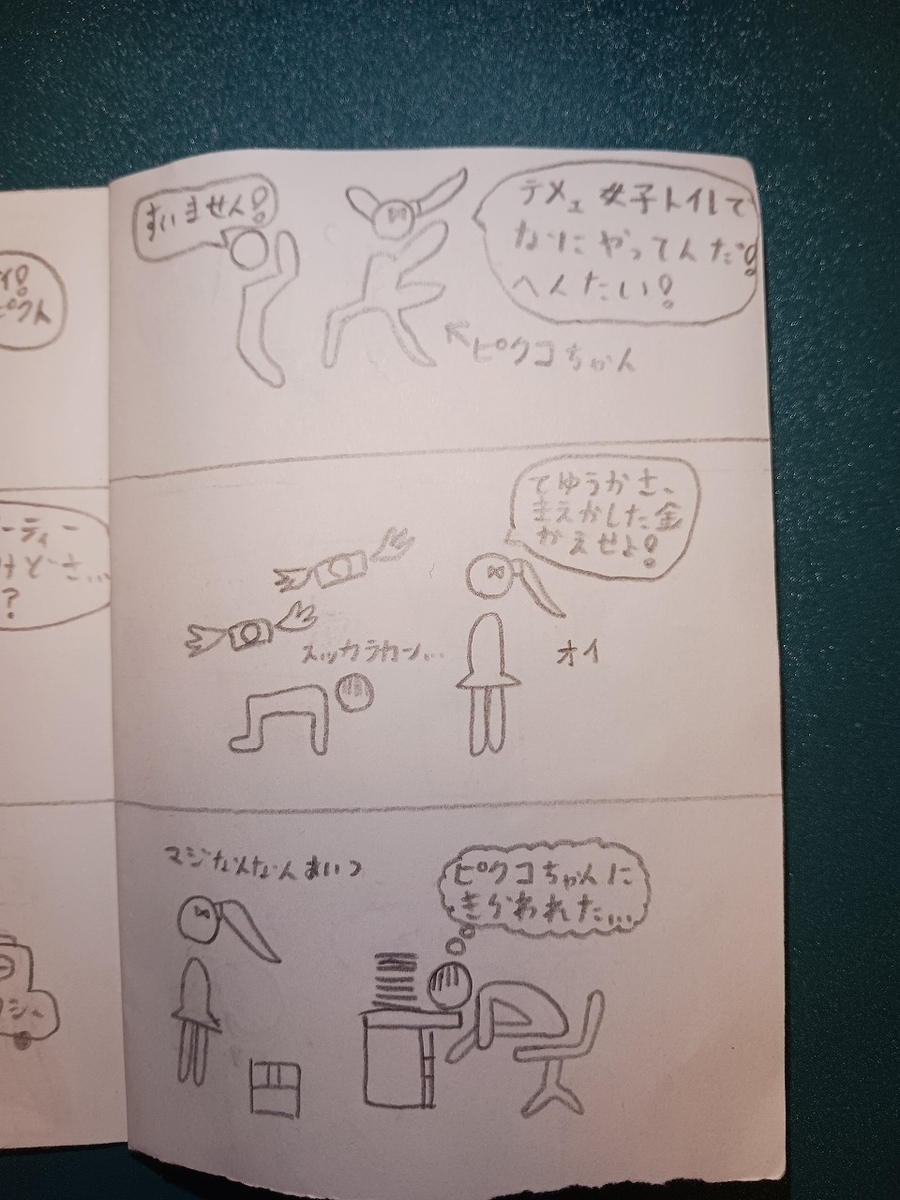 すいません!
テメェ 女子トイレで
なにやってんだ!
へんたい!
ピクコちゃん
てゆうかさ、
まえかした金
かえせよ!
スッカラカン...
オイ
マジなんなんあいつ
ピクコちゃんに
きらわれた...
ピクト
ーティー
けどさ...
?